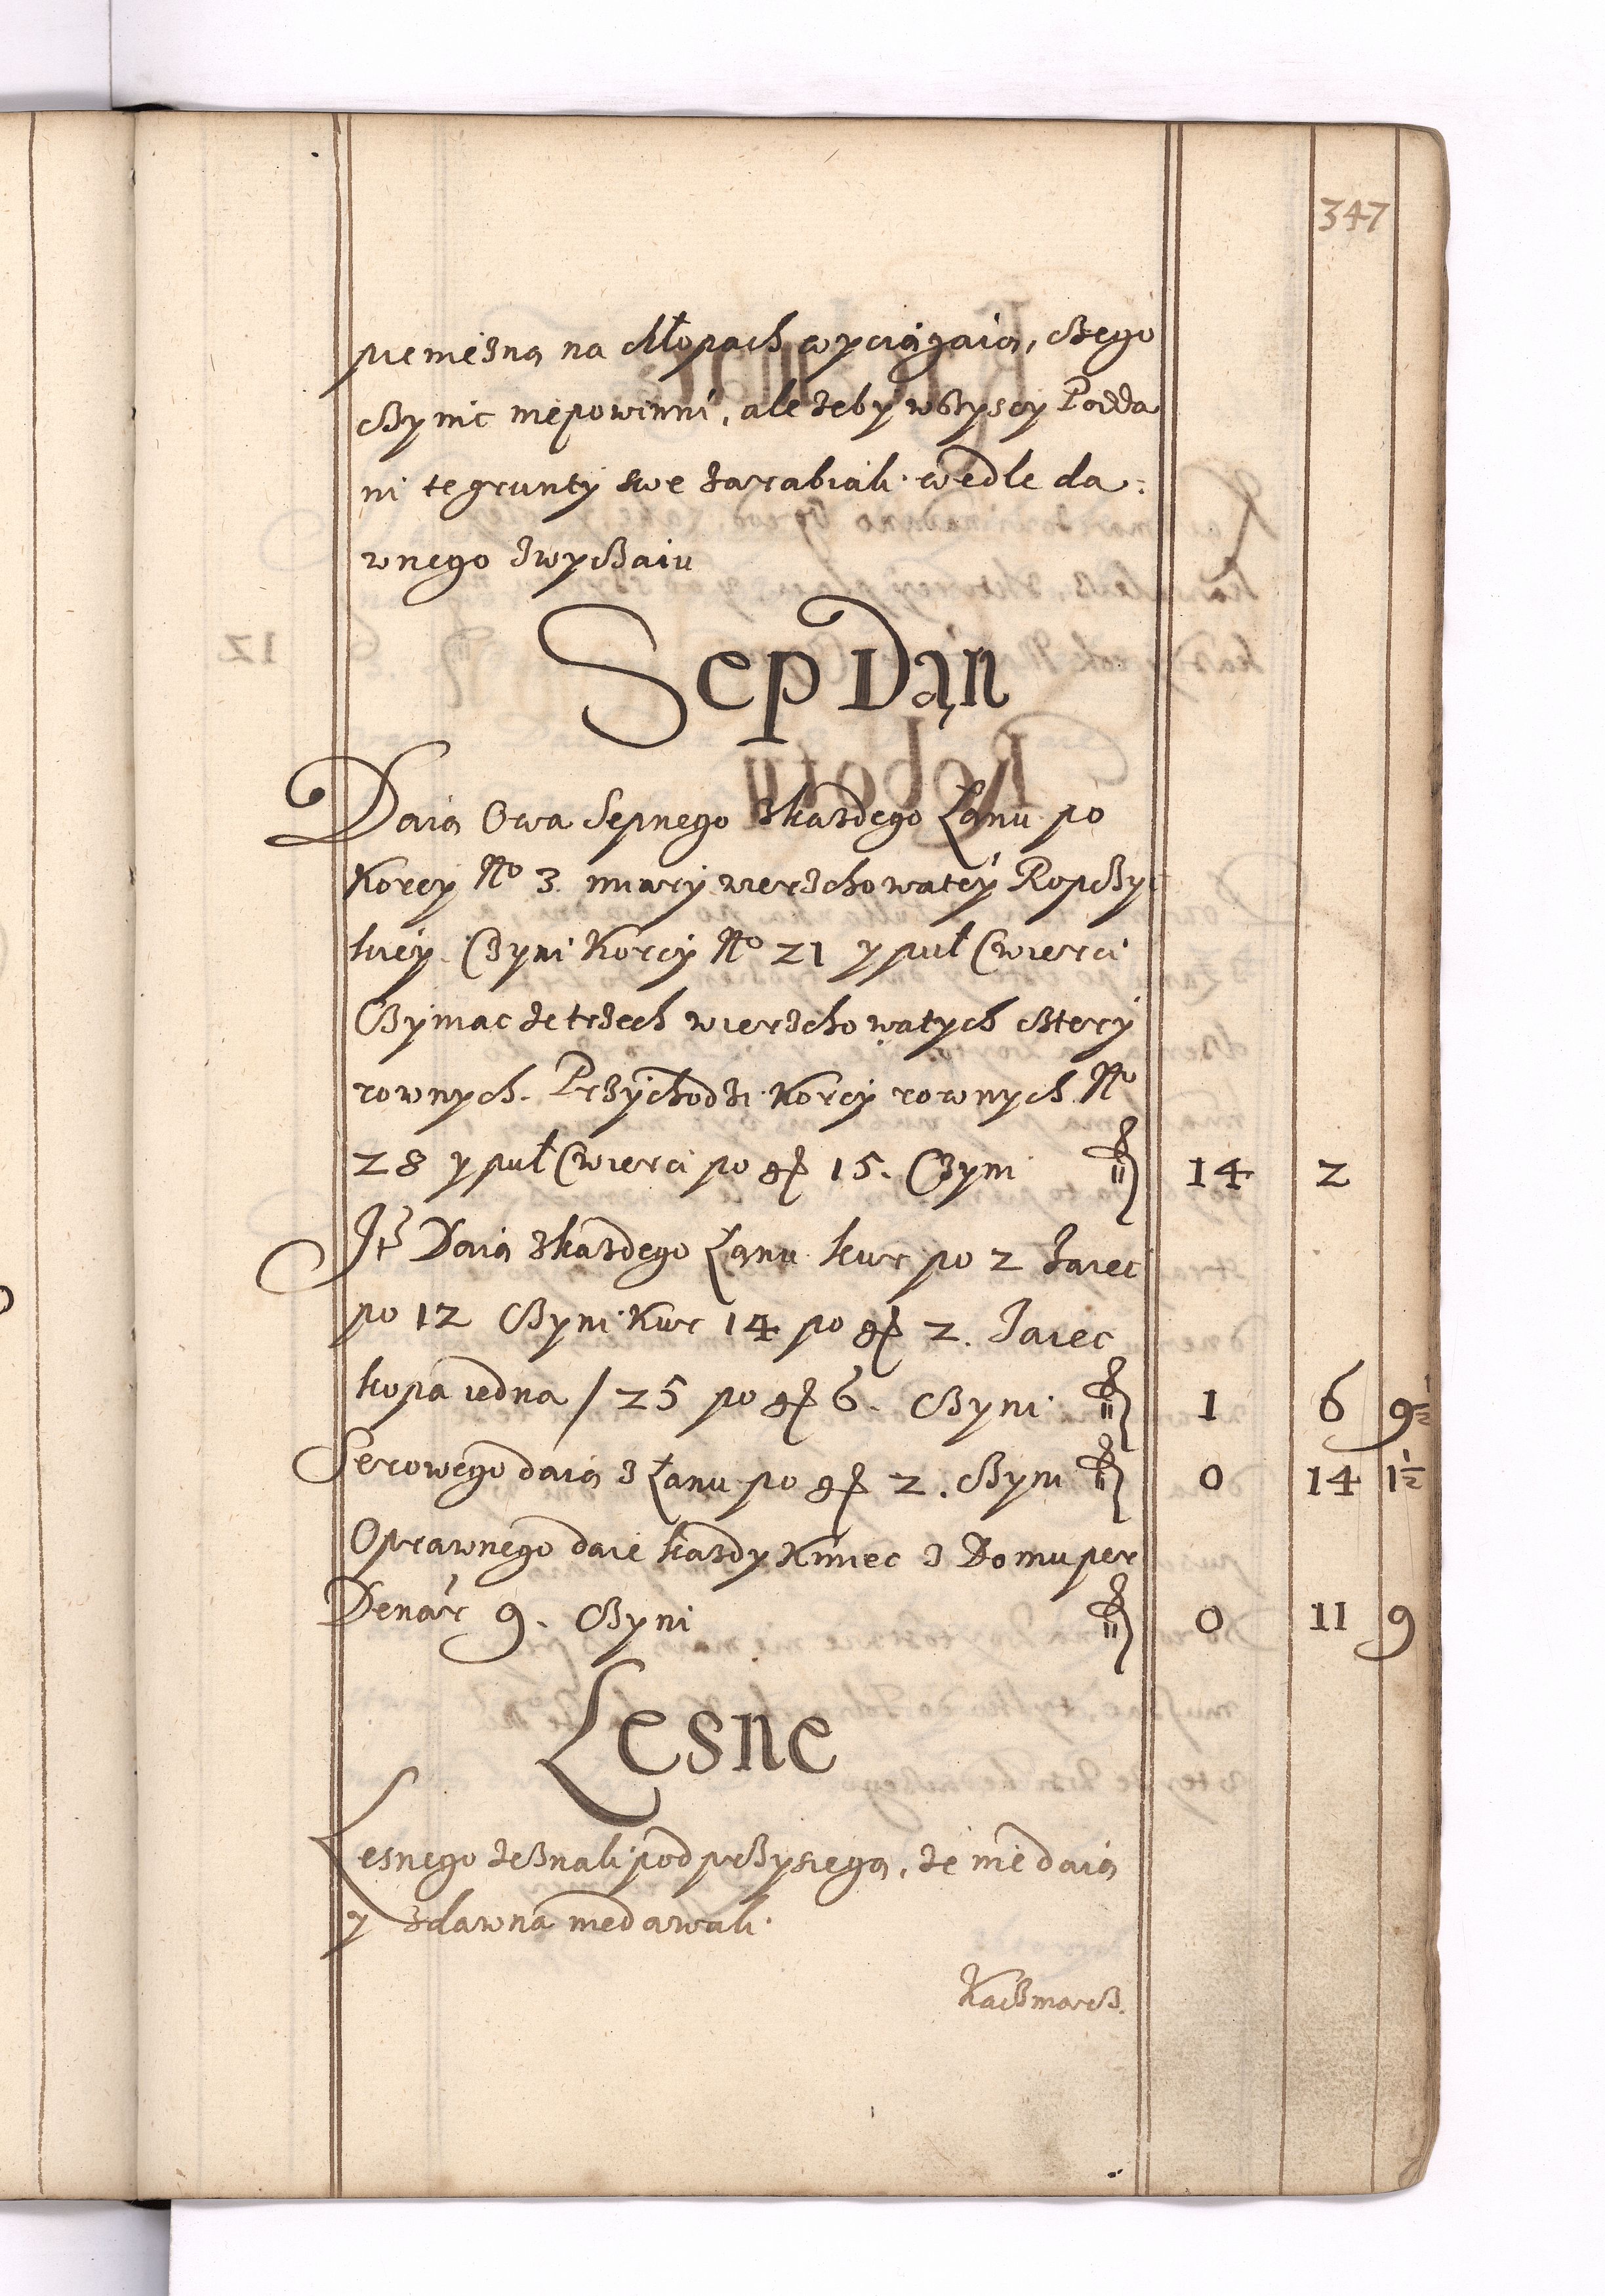 347
pieniezną na chłopach wyciągaią, czego
czynic niepowinni, ale zeby wszyscy Podda
ni te grunty swe zarabiali wedle da:
wnego zwyczaiu
Sep Dan
Daią Owsa Sepnego zkazdego Łanu po
Korcy No 3. miary wierzchowatey Ropczy
kiey. Czyni Korcy No 21 y puł Cwierci
Czyniac ze trzech wierzchowatych cztery
rownych. Przychodzi Korcy rownych No
28 y puł Cwierci po gr 15. Czyni fl 14 2
It Daią zkazdego Łanu kur po 2 Jaiec
po 12 Czyni Kur 14 po gr 2. Jaiec
kopa iedna / 25 po gr 6. Czyni fl 1 6 9½
Serowego daią z Łanu po gr 2. Czyni fl 0 14 1½
Oprawnego daie kazdy Kmiec z Domu per
Denar 9. Czyni fl 0 11 9
Lesne
Lesnego zeznali pod przysięgą, ze nie daią
y zdawna niedawali.
Kaczmarcz.